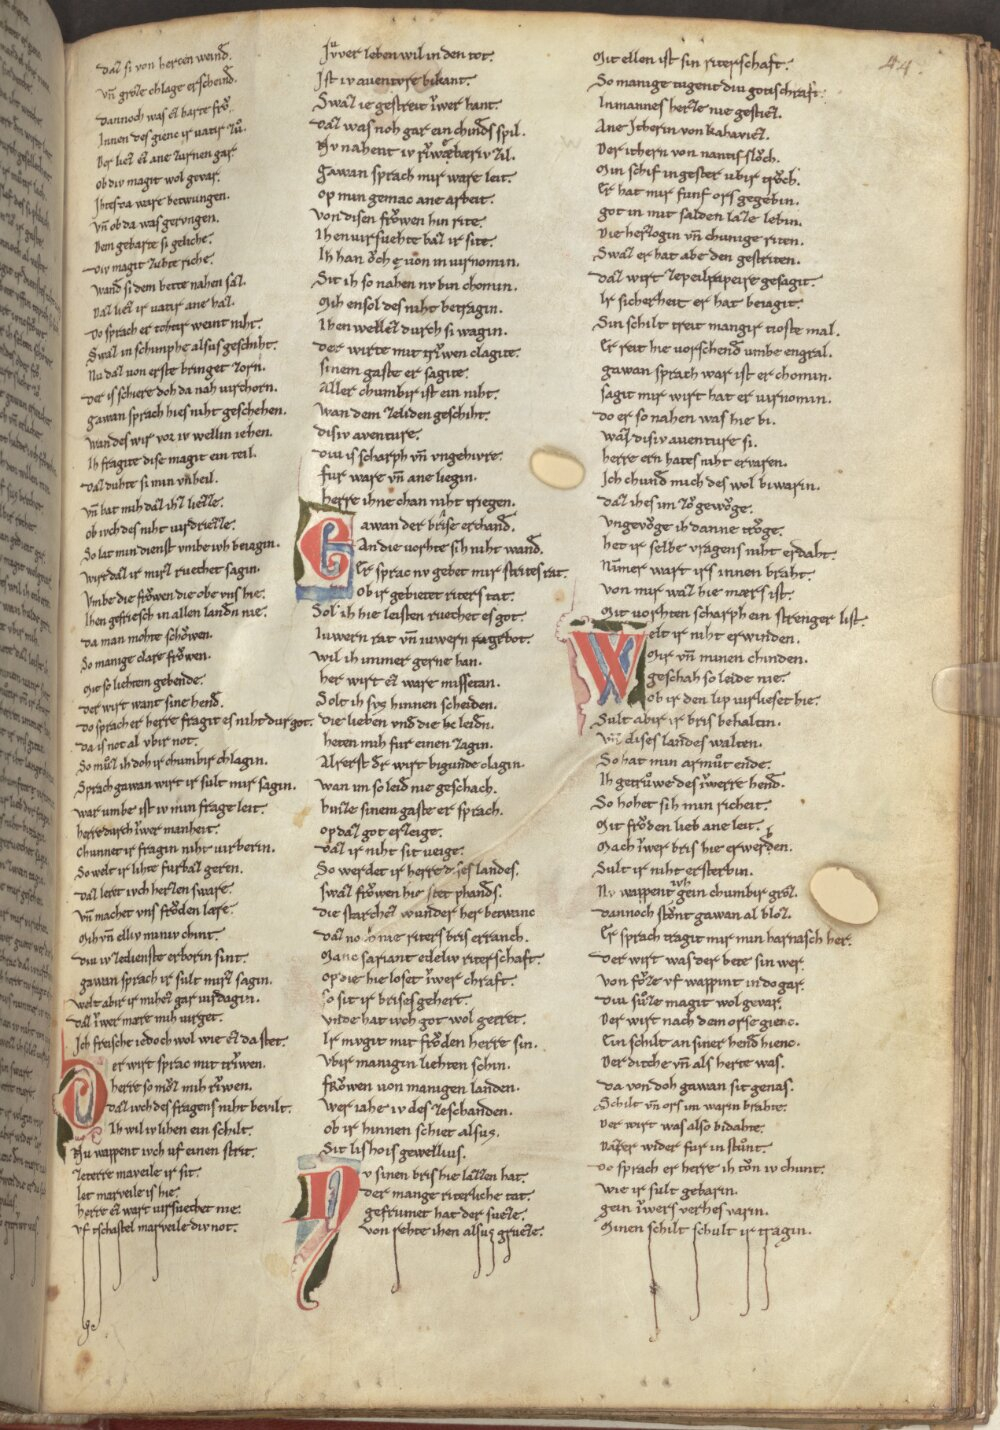 44.
daz si von herten weind.
vn̄ groze chlage erscheind.
dannoch was ez harte frō.
Innen des gienc ir uatir zů.
Der liez ez ane zurnen gar
ob div magit wol gevar.
Ihtes da ware betwungen.
vn̄ ob da was gerungen.
Dem gebarte si geliche.
Div magit zuhte riche.
wand si dem bette nahen saz.
Daz liez ir uatir ane haz.
Do sprach er tohtir weint niht.
Swaz in schimphe alsus geschiht.
Na daz von erste bringet zorn.
Der is schiere doh da nah virchorn.
Gawan sprach hies niht geschehen.
wan des wir vor iv wellin iehen.
Ih fragite dise magit ein teil.
Daz duhte si min vnheil.
vn̄ bat mih daz ihz liezze.
ob ivch des niht uirdriezze.
So lat min dienst vmbe ivh beiagin.
wirt daz ir mirz ruechet sagin.
Vmbe die frŏwen die obe vns hie.
Ihen gefriesch in allen landn nie.
da man mohte schŏwen.
So manige clare frŏwen.
Mit so liehtem gebende.
Der wirt want sine hend.
Do sprach er herre fragit es niht durgot.
da is not al vbir not.
So můz ih doh ir chumbir chlagin.
Sprach gawan wirt ir sult mir sagin.
war umbe ist iv min frage leit.
herre durch ywer manheit.
chunnet ir fragin niht uirberin.
So welt ir lihte furbaz geren.
daz leret ivch herzen sware.
vn̄ machet vns frŏden lare.
Mih vn̄ elliv miniv chint.
div iv ze dienste erborin sint.
gawan sprach ir sult mirz sagin.
welt abir ir mihez gar uirdagin.
Daz ywer mære mih uirget.
Ich freische iedoch wol wie ez da stet.
Der wirt sprac mit trŵwen.
herre so můz mih rŵwen.
daz ivch des fragens niht bevilt.
Ih wil iv lihen ein schilt.
Nu wappent ivch uf einen strit.
zeterre marveile ir sit.
Let marveile is hie.
herre ez wart uirsuechet nie.
vf tschastel marveile div not.
Iuwer leben wil in den tot.
Ist iv auenture bikant.
Swaz ie gestreit ywer hant.
Daz was noh gar ein chinds spil.
Nv nahent iv rŵwebæriv zil.
Gawan sprach mir ware leit.
op min gemac ane arbeit.
von disen frŏwen hin rite.
Ihen uirsuehte baz ir site.
Ih han ŏch ę uon in uirnomin.
Sit ih so nahen nv bin chomin.
Mih ensol des niht betragin.
Ihen wellez durch si wagin.
Der wirte mit trŵwen clagite.
sinem gaste er sagite.
Aller chumbir ist ein niht.
wan dem zeliden geschiht.
disiv aventure.
Div is scharph vn̄ vngehivre.
fur ware vn̄ ane liegin.
herre ihne chan niht triegen.
Gawan der brise erchand.
An die uorhte sih niht wand.
Er sprac nv gebet mir strites rat.
ob ir gebietet riters tat.
Sol ih hie leisten ruechet es got.
Iuwern rat vn̄ iuwern gebot.
wil ih immer gerne han.
her wirt ez ware missetan.
Solt ih sus hinnen scheiden.
die lieben vnd die leidn.
heten mih fur einen zagin.
Alrerst dr wirt bigunde clagin.
wan im so leid nie geschach.
hinze sinem gaste er sprach.
op daz got erzeige.
daz ir niht sit ueige.
So werdet ir herre dises landes.
swaz frŏwen hie stet phands.
die starchez wunder her betwanc
daz noh nie riters bris erranch.
Manc sariant edeliv riterschaft.
op die hie loset ywer chraft.
so sit ir brises gehert.
vnde hat ivch got wol geeret.
Ir mvgit mit frŏden herre sin.
vbir manigin liehten schin.
frŏwen uon manigen landen.
wer iahe iv des ze schanden.
ob ir hinnen schiet alsus.
Sit lishois gewellius.
Iv sinen bris hie lazzen hat.
der mange riterliche tat.
gefrumet hat der sueze.
von rehte ihen alsus grueze.
Mit ellen ist sin riterschaft.
So manige tugent div gotis chraft.
In mannes herze nie gestiez.
Ane Itherin von kahaviez.
Der ithern von nantis slŏch.
Min schif in gester ubir trŏch.
Er hat mir funf ors gegebin.
got in mit salden laze lebin.
Die herzogin vn̄ chunige riten.
Swaz er hat abe den gestriten.
daz wirt ze peilrapeire gesagit.
Ir sicherheit er hat beiagit.
Sin schilt treit mangir tioste mal.
Er reit hie uorschend vmbe engral.
gawan sprach war ist er chomin.
sagit mir wirt hat er uirnomin.
do er so nahen was hie bi.
waz disiv auenture si.
herre ern hates niht ervaren.
Ich chund mich des wol biwarin.
daz ihes im zŏ gewŏge.
vngevŏge ih danne trŏge.
het ir selbe vragens niht erdaht.
Nimer wart irs innen braht.
von mir waz hie mærs ist.
Mit uorhten scharph ein strenger list.
Welt ir niht erwinden.
Mir vn̄ minen chinden.
geschah so leide nie.
ob ir den lip uirlieset hie.
Sult abir ir bris behaltin.
vn̄ dises landes walten.
So hat min armůt ende.
Ih getrůwe des ywerre hend.
So hohet sih min richeit.
Mit frŏden lieb ane leit.
Mach ywer bris hie erwerden.
Sult ir niht ersterbin.
Nv wappent ivh gein chumbir groz.
Dannoch stŏnt gawan al bloz.
Er sprach tragit mir min harnasch her.
Der wirt was der bete sin wer.
von fŏze vf wappint in do gar.
Div sůze magit wol gevar.
Der wirt nach dem orse gienc.
Ein schilt an siner hend hienc.
Der dicche vn̄ als herte was.
da von doh gawan sit genas.
Schilt vn̄ ors im warin brahte.
Der wirt was also bidahte.
Daz er wider fur in stůnt.
Do sprach er herre ih tŏn iv chunt.
wie ir sult gebarin.
gein ywers verhes varin.
Minen schilt schult ir tragin.